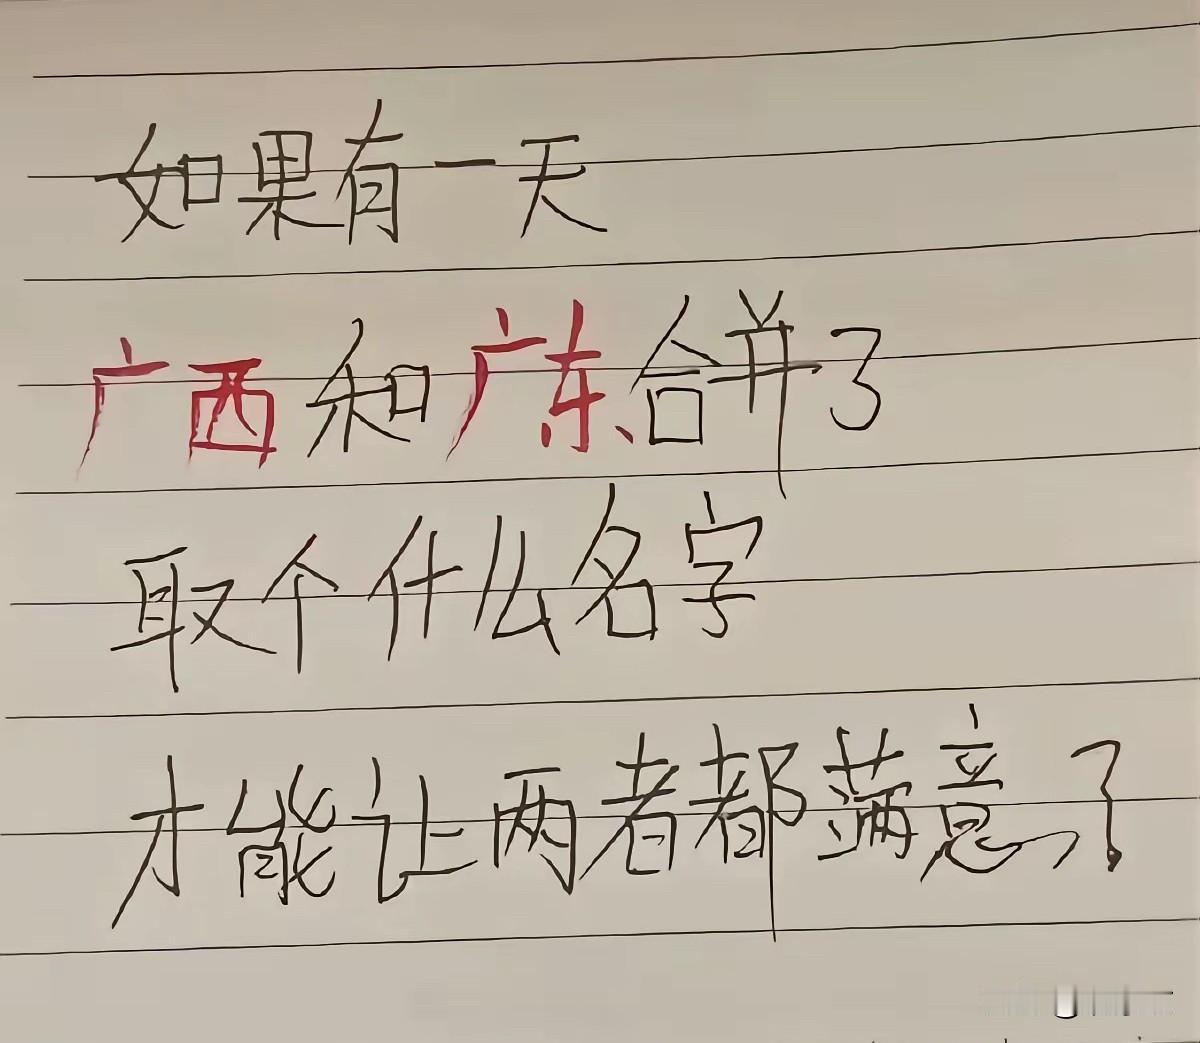 如果有一天
广西和广东合并了
取个什么名字
才能让两者都满意?